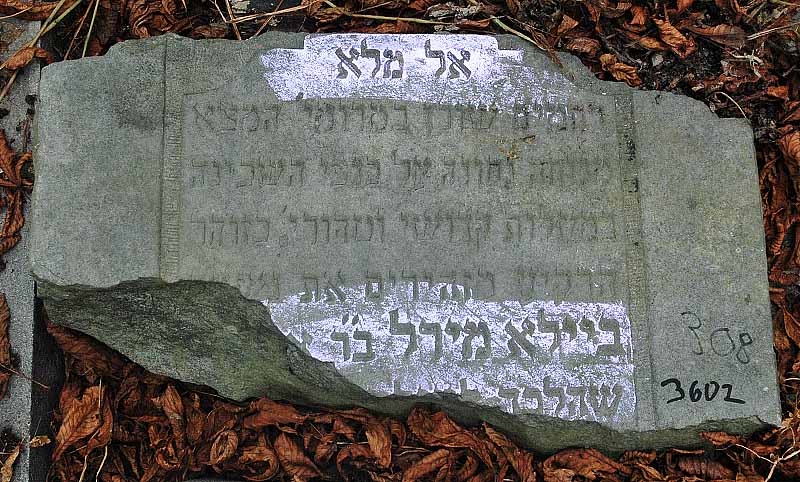 אל מלא
רחמים שוכן במרומי׳ המצא
מנוחה נכונה על כנפי השכינה
במעלות קדושי׳ וטהורי׳ כזוהר
הרקיע מזהירים את
ביילא מירל בר
שהלכה
308
3602